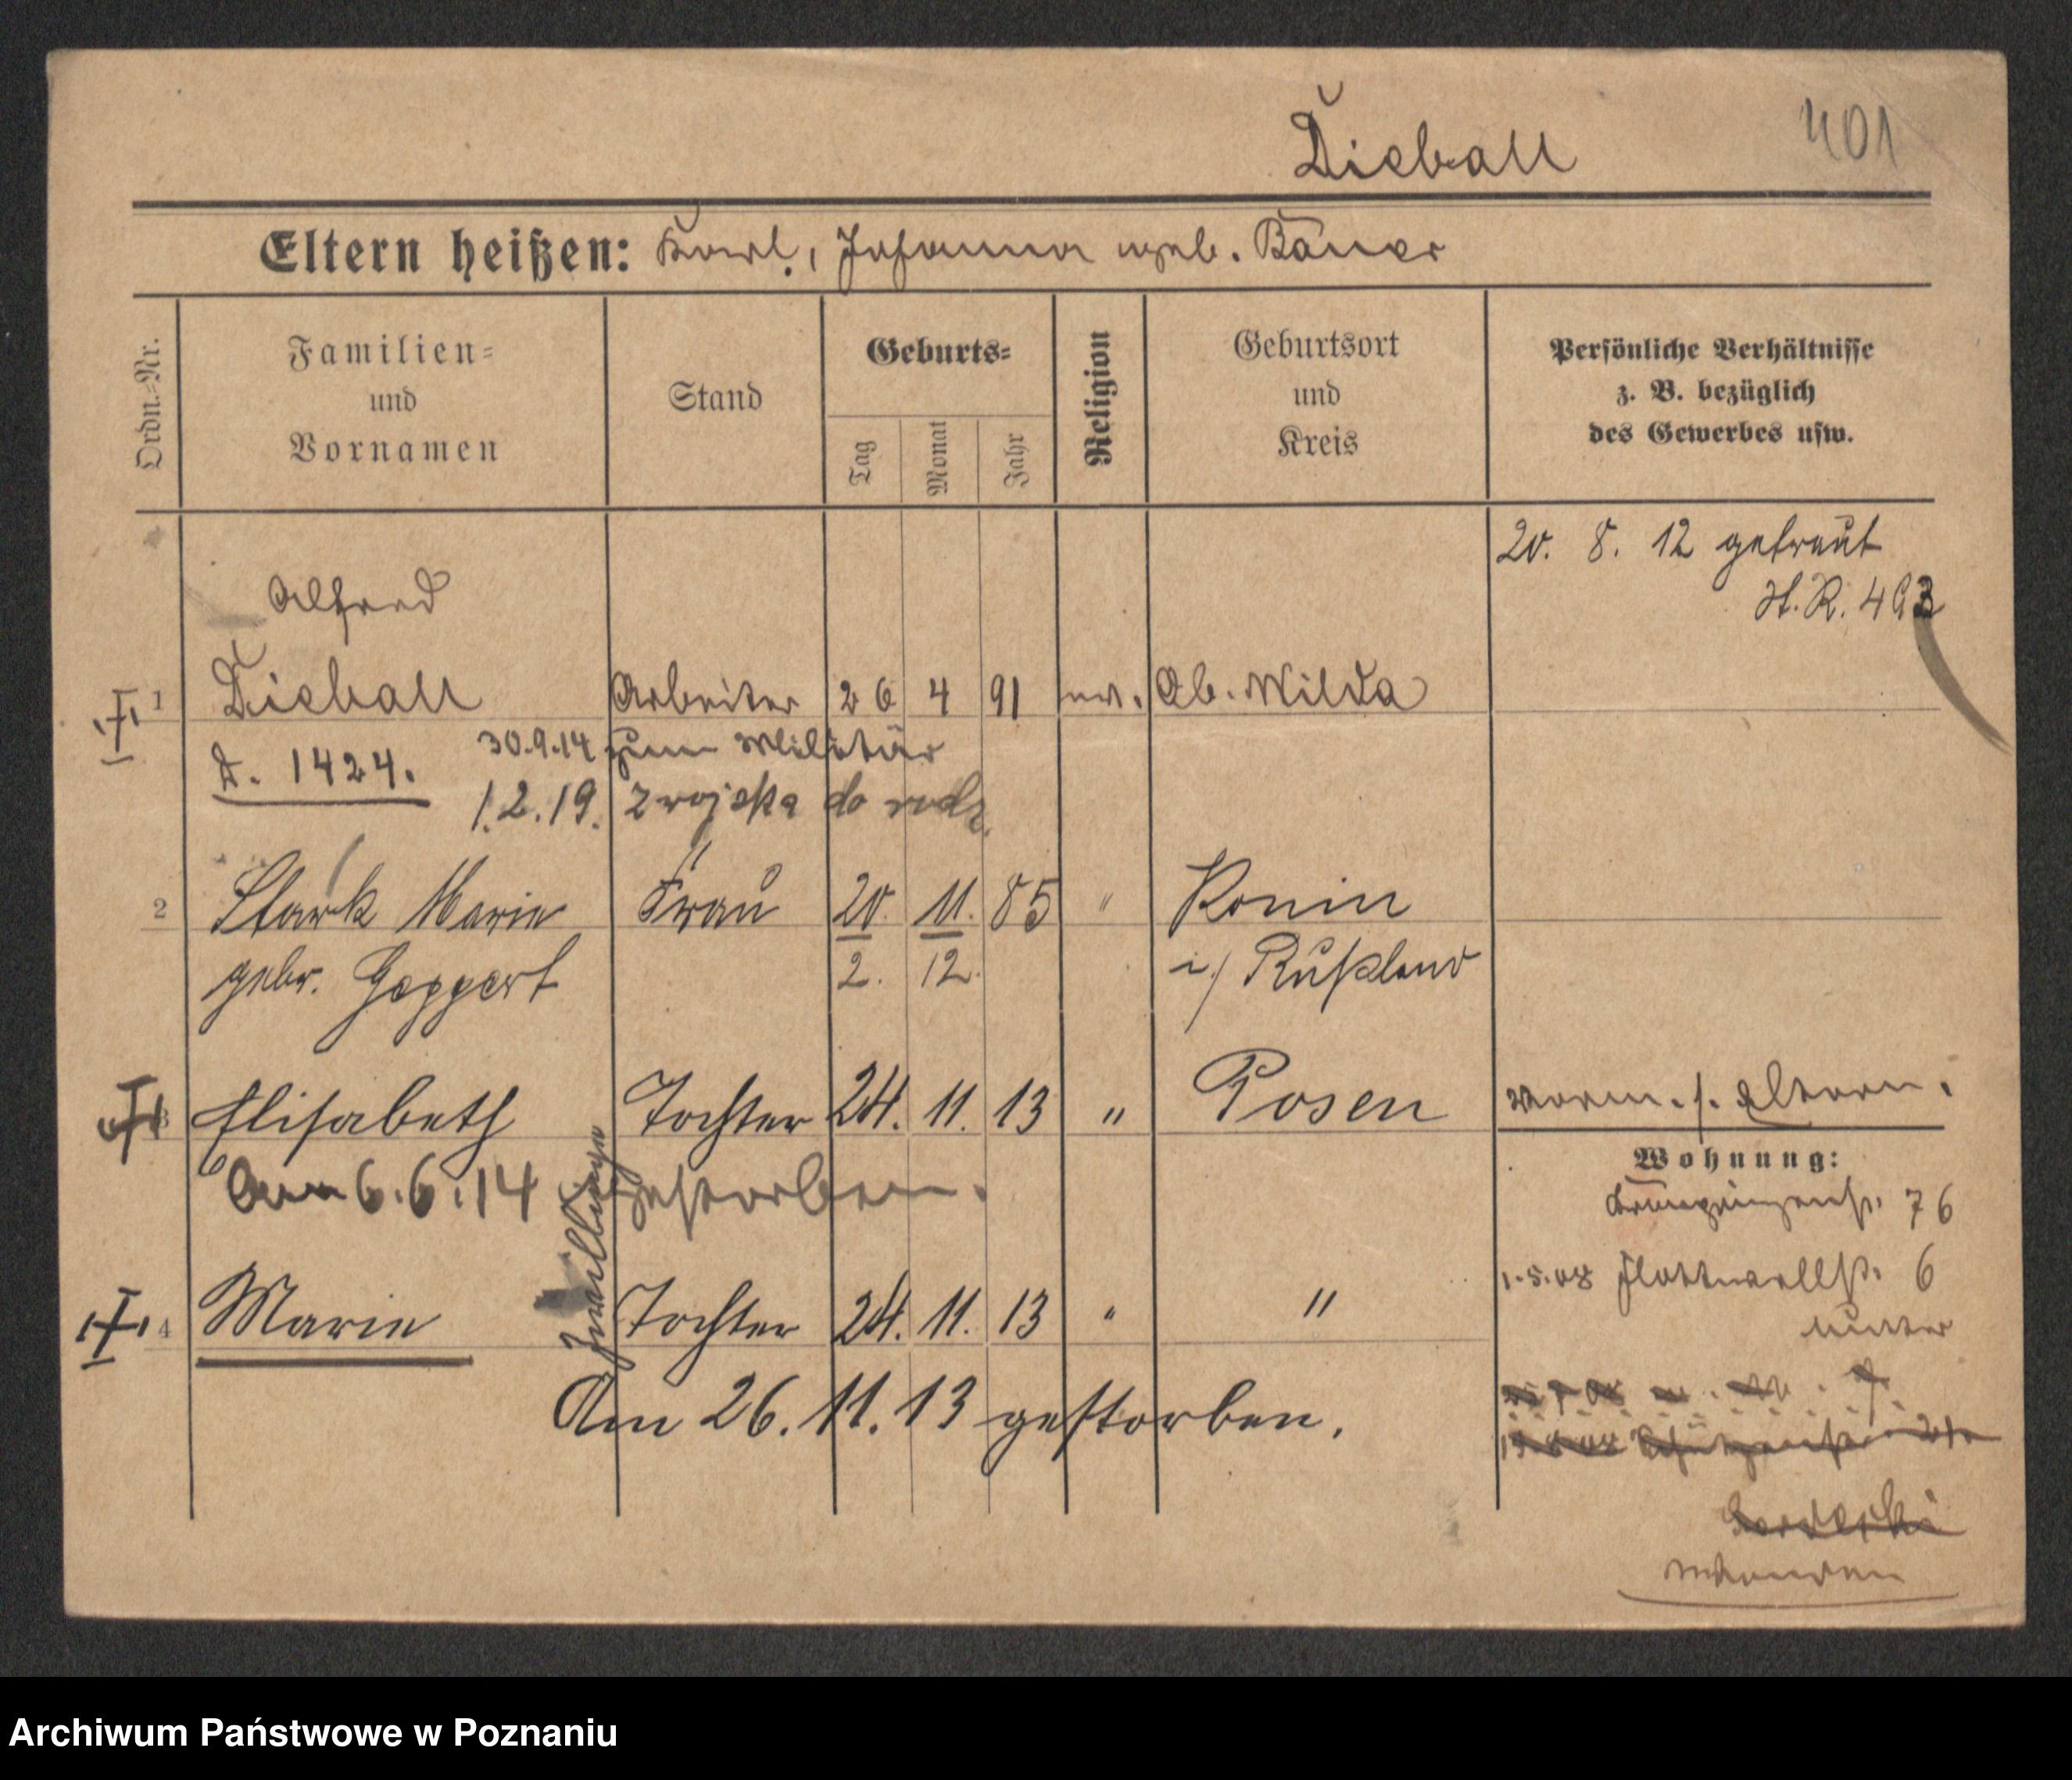 Dieball
401
Eltern heißen: Karl, Johanna geb. Bauer
Ordn.-Nr.
Familien-
und
Vornamen
Stand
Geburts-
Tag
Monat
Jahr
Religion
Geburtsort
und
Kreis
Persönliche Verhältnisse
z. B. bezüglich
des Gewerbes usw.
20. 8. 12 getraut
H. R. 493
Alfred
1 Dieball Arbeiter 26 4 91 ev. Ob. Wilda
D. 1424. 30.9.14 zum Militär
1.2.19. z wojska do rodz.
2 Stark Marie Frau 20. 11. 85 " Konin
gebr. Geppert 2. 12. i/ Rußland
3 Elisabeth Tochter 24. 11. 13 " Posen
s. Eltern.
Am 6.6.14 gestorben.
Zwillinge
Wohnung:
Kronprinzenstr. 76
1.5.08 Flottwellstr. 6
4 Marie Tochter 24. 11. 13 " "
Am 26. 11. 13 gestorben.
Archiwum Państwowe w Poznaniu